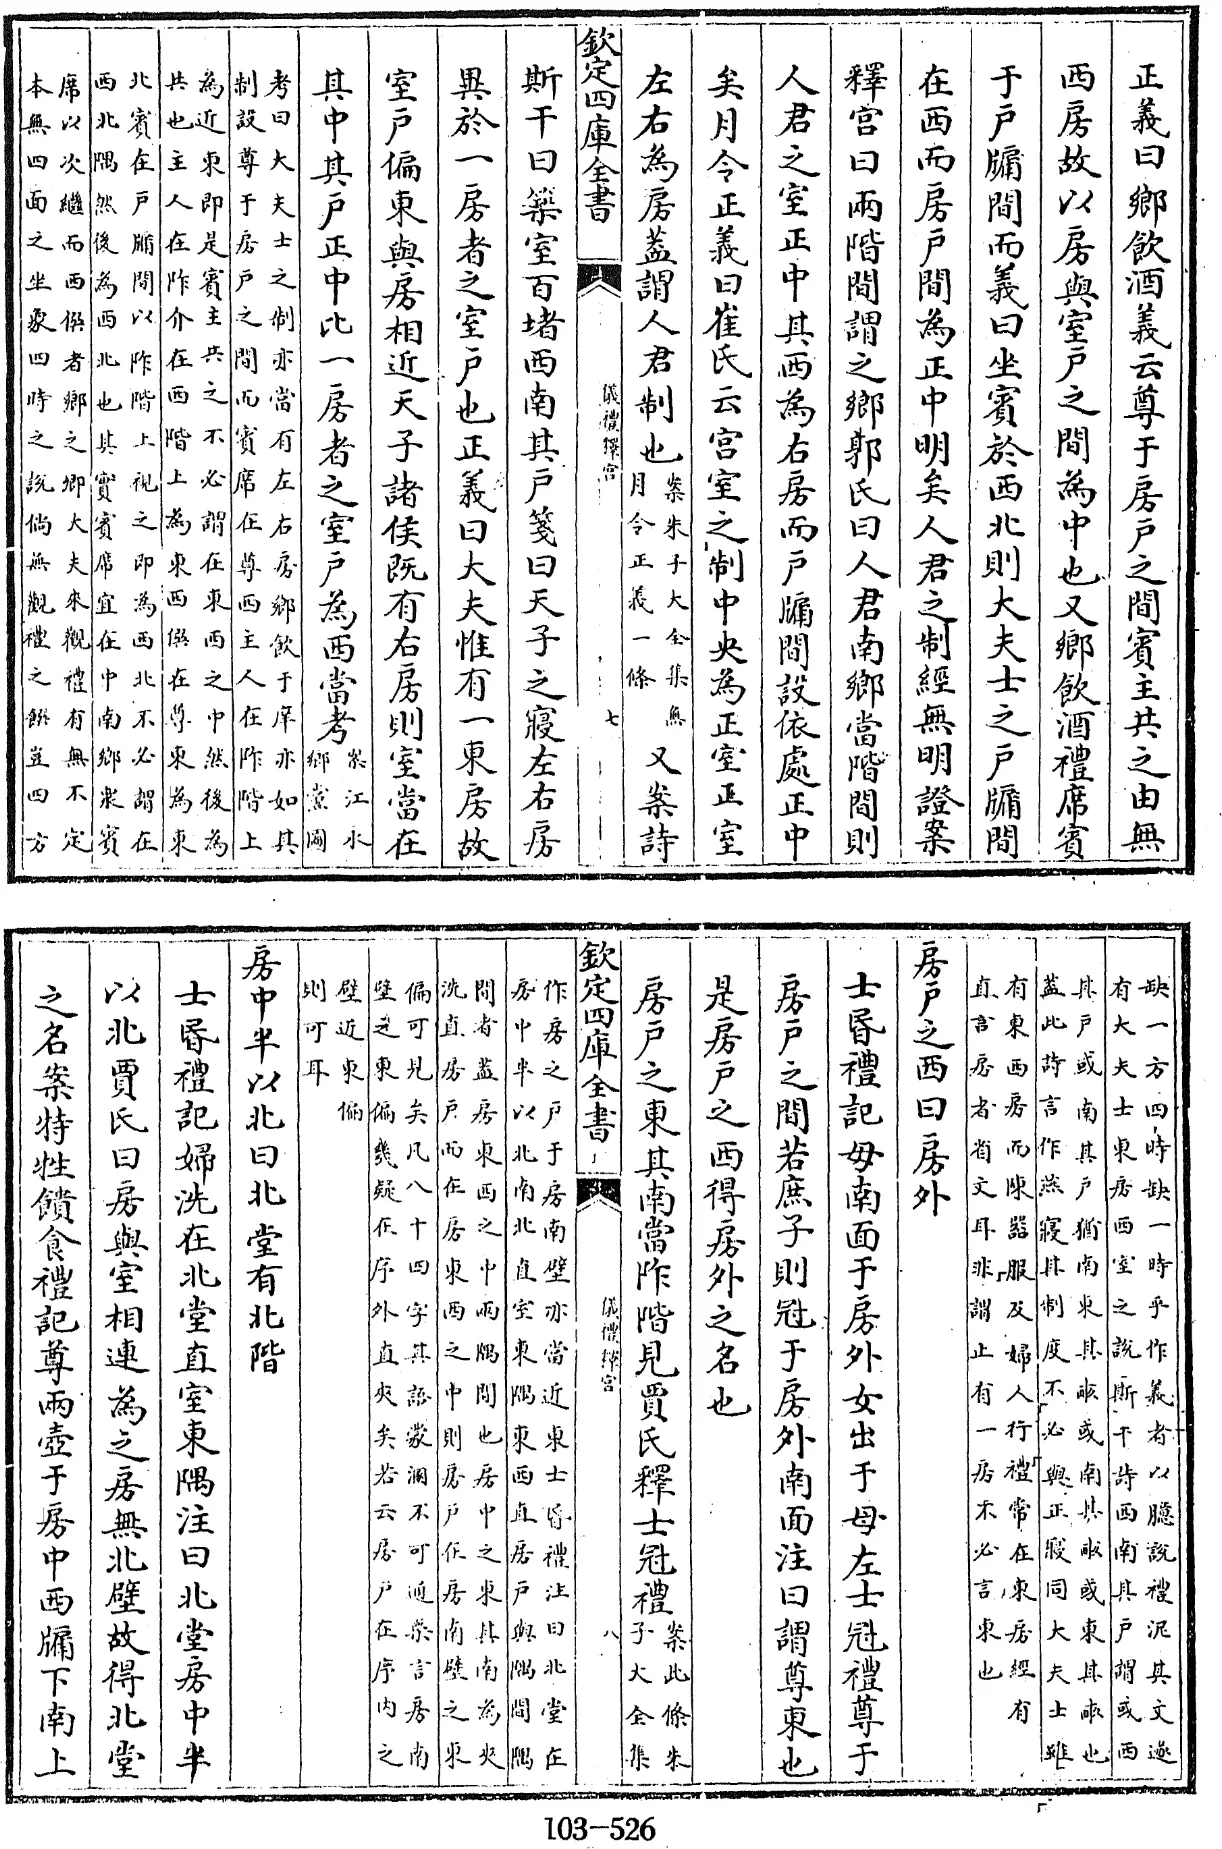 正義曰鄉飲酒義云尊于房户之間賓主共之由無
西房故以房與室户之間為中也又鄉飲酒禮席賓
于户牖間而義曰坐賓於西北則大夫士之户牖間
在西而房户間為正中明矣人君之制經無明證案
釋宫曰兩階間謂之鄉郭氏曰人君南鄉當階間則
人君之室正中其西為右房而户牖間設依處正中
矣月令正義曰崔氏云宫室之制中央為正室正室
左右為房葢謂人君制也案朱子大全集無
月令正義一條又案詩
欽定四庫全書
儀禮釋宫
七
斯干曰築室百堵西南其户箋曰天子之寢左右房
異於一房者之室户也正義曰大夫惟有一東房故
室户偏東與房相近天子諸侯既有右房則室當在
其中其户正中比一房者之室户為西當考案江永
鄉黨圖
考曰大夫士之制亦當有左右房鄉飲于庠亦如其
制設尊于房户之間而賓席在尊西主人在阼階上
為近東即是賓主共之不必謂在東西之中然後為
共也主人在阼介在西階上為東西僎在尊東為東
北賓在户牖間以阼階上視之即為西北不必謂在
西北隅然後為西北也其實賓席宜在中南鄉衆賓
席以次繼而西僎者鄉之卿大夫來觀禮有無不定
本無四面之坐象四時之說倘無觀禮之僎豈四方
缺一方四時缺一時乎作義者以臆說禮泥其文遂
有大夫士東房西室之說斯干詩西南其户謂或西
其户或南其户猶南東其畝或南其畝或東其畝也
葢此詩言作燕寢其制度不必與正寢同大夫士雖
有東西房而陳器服及婦人行禮常在東房經有
直言房者省文耳非謂止有一房不必言東也
房户之西曰房外
士昏禮記母南面于房外女出于母左士冠禮尊于
房户之間若庶子則冠于房外南面注曰謂尊東也
是房户之西得房外之名也
房户之東其南當阼階見賈氏釋士冠禮案此條朱
子大全集
欽定四庫全書
儀禮釋宫
八
作房之户于房南壁亦當近東士昏禮注曰北堂在
房中半以北南北直室東隅東西直房户與隅間隅
間者葢房東西之中兩隅間也房中之東其南為夾
洗直房户而在房東西之中則房户在房南壁之東
偏可見矣凡八十四字其語蒙溷不可通案言房南
壁之東偏幾疑在序外直夾矣若云房户在序内之
壁近東偏
則可耳
房中半以北曰北堂有北階
士昏禮記婦洗在北堂直室東隅注曰北堂房中半
以北賈氏曰房與室相連為之房無北壁故得北堂
之名案特牲饋食禮記尊兩壺于房中西牖下南上
103-526